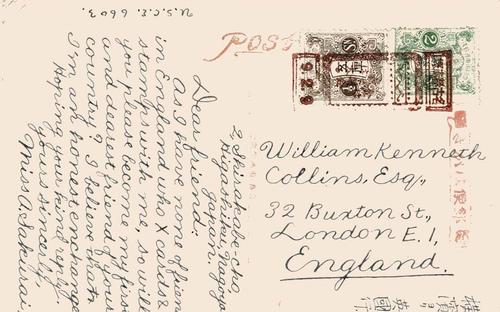 U.S.C.E. 6603.
POST
2
2 Shiradcabe-cho
Higashiku, Nagoya
Japan.
Dear friend.
As I have none of friend
in England who X cards &
stamps with me, so will
you please become my first
and dearest friend of your
country? I believe that
I'm an honest exchanger
Hoping your kind reply,
yours sincerly,
Miss A. Sakurai.
William Kenneth
Collins, Esq.,
32 Buxton St.,
London E.1,
England.
英國行